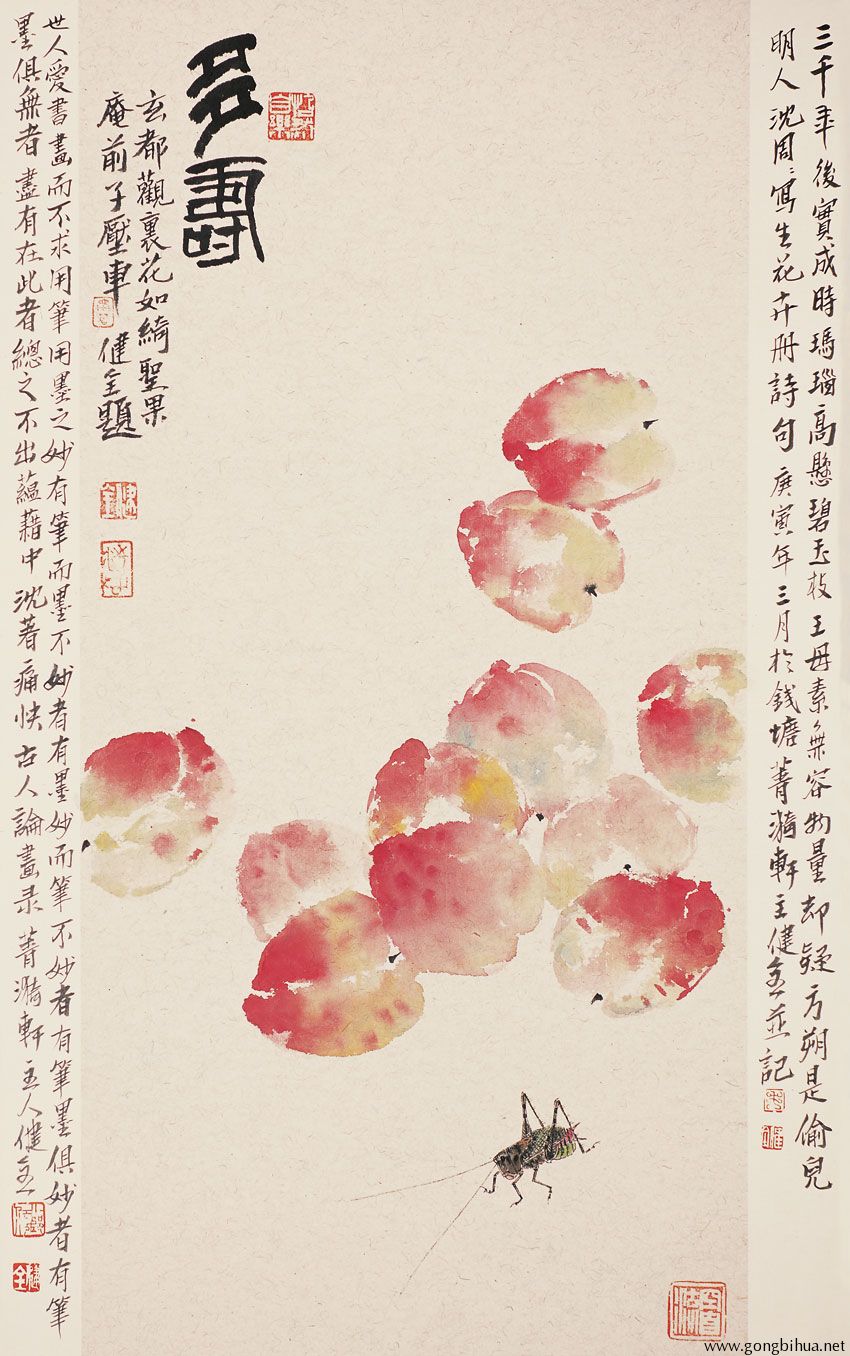 三千年後實成時瑪瑙高懸碧玉枝王母素無容物量却疑方朔是偷兒
明人沈周〻寫生花卉冊詩句庚寅年三月於錢塘菁漪軒主健全並記
多壽
玄都觀裏花如綺聖果
庵前子壓車健全題
世人愛書畫而不求用筆用墨之妙有筆而墨不妙者有墨妙而筆不妙者有筆墨俱妙者有筆
墨俱無者盡有在此者總之不出蘊藉中沈著痛快古人論畫录菁漪軒主人健全
www.gongbihua.net